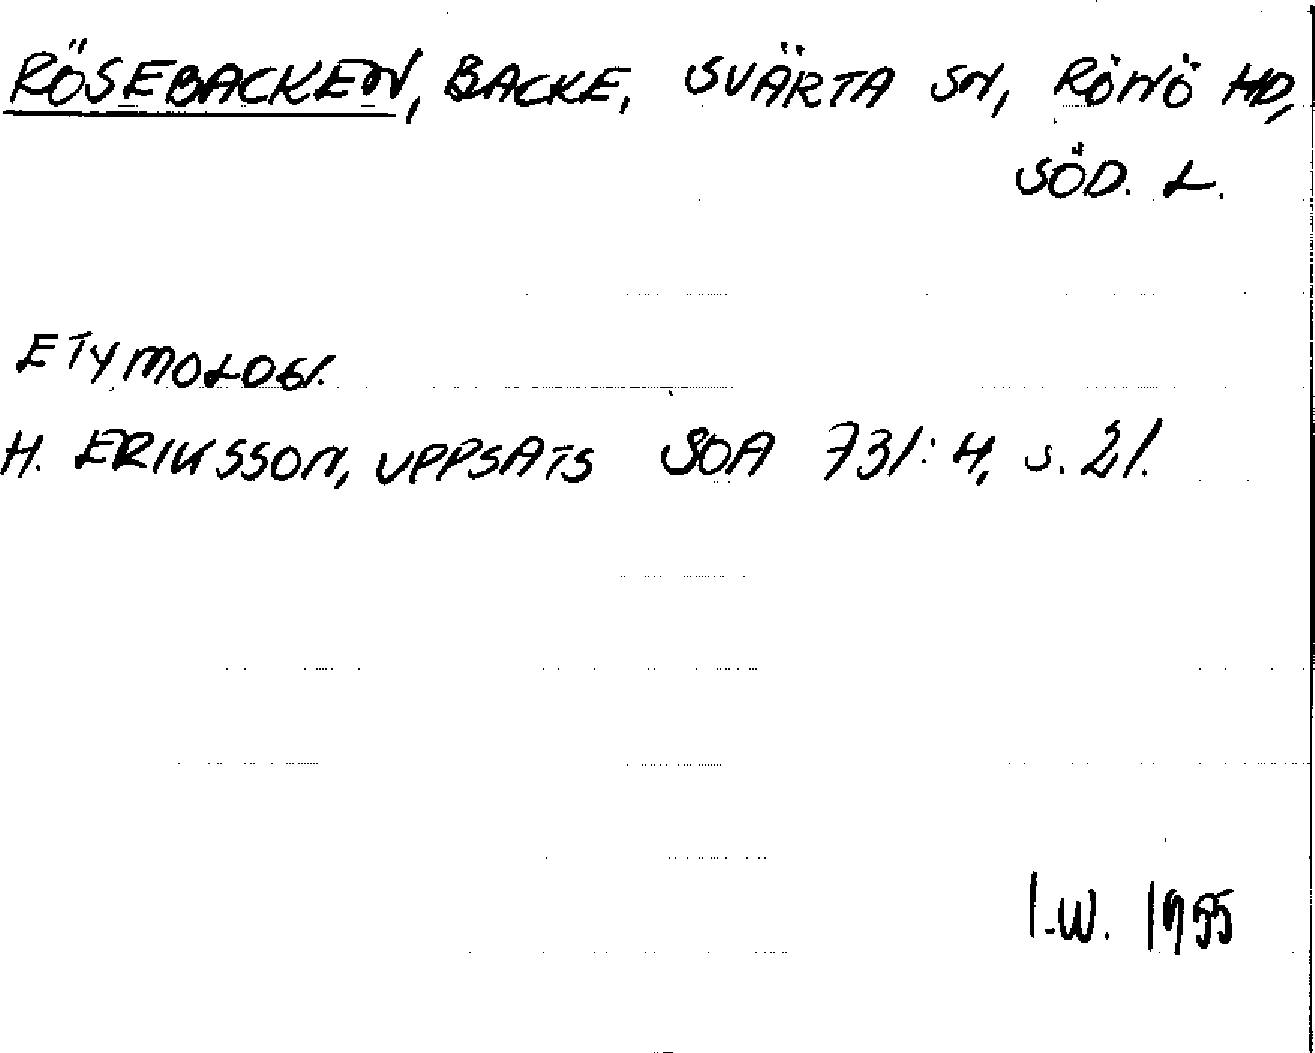 RÖSEBACKEN, BACKE, SVÄRTA SN, RÖNÖ HD,
SÖD. L.
ETYMOLOGI.
H. ERIKSSON, UPPSATS SOA 731:4, s. 21.
I.W. 1955